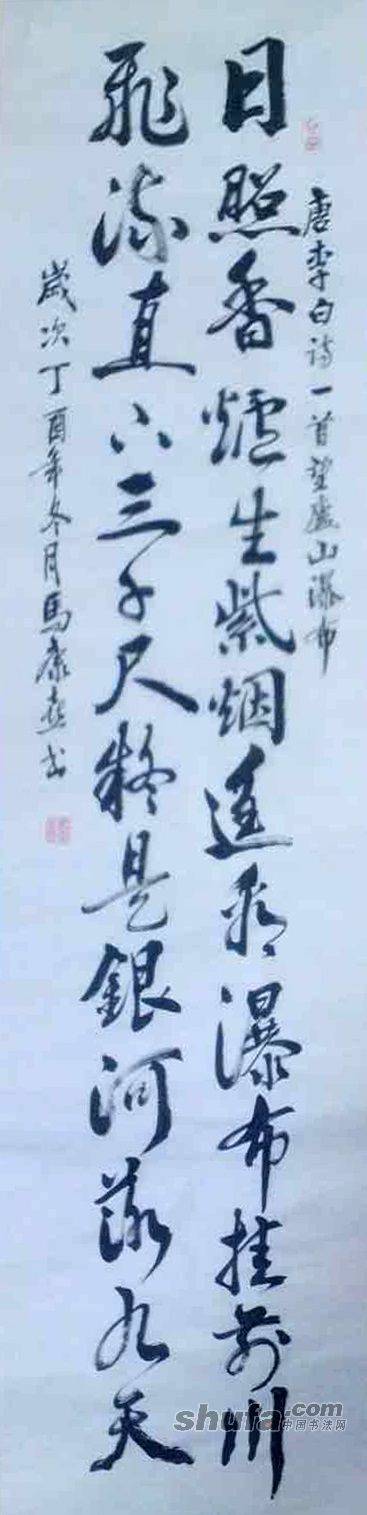 唐李白诗一首望廬山瀑布
日照香爐生紫烟遥看瀑布挂前川
飛流直下三千尺疑是銀河落九天
歲次丁酉年冬月馬康书
shufa.com
中国书法网